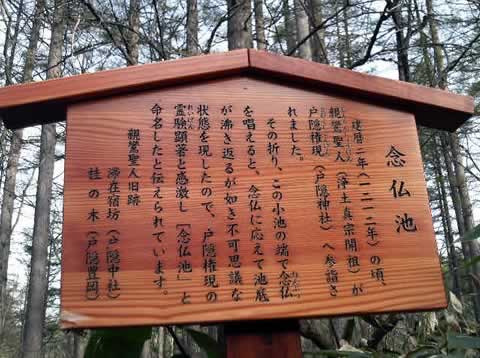 念仏池
建暦二年(一二一二年)の頃、
親鸞聖人(浄土真宗開祖)が
戸隠権現(戸隠神社)へ参詣さ
れました。
その折り、この小池の端で念仏
を唱えると、念仏に応えて池底
が沸き返るが如き不可思議な
状態を現したので、戸隠権現の
霊験顕著と感激し「念仏池」と
命名したと伝えられています。
親鸞聖人旧跡
滞在宿坊(戸隠中社)
桂の木(戸隠豊岡)